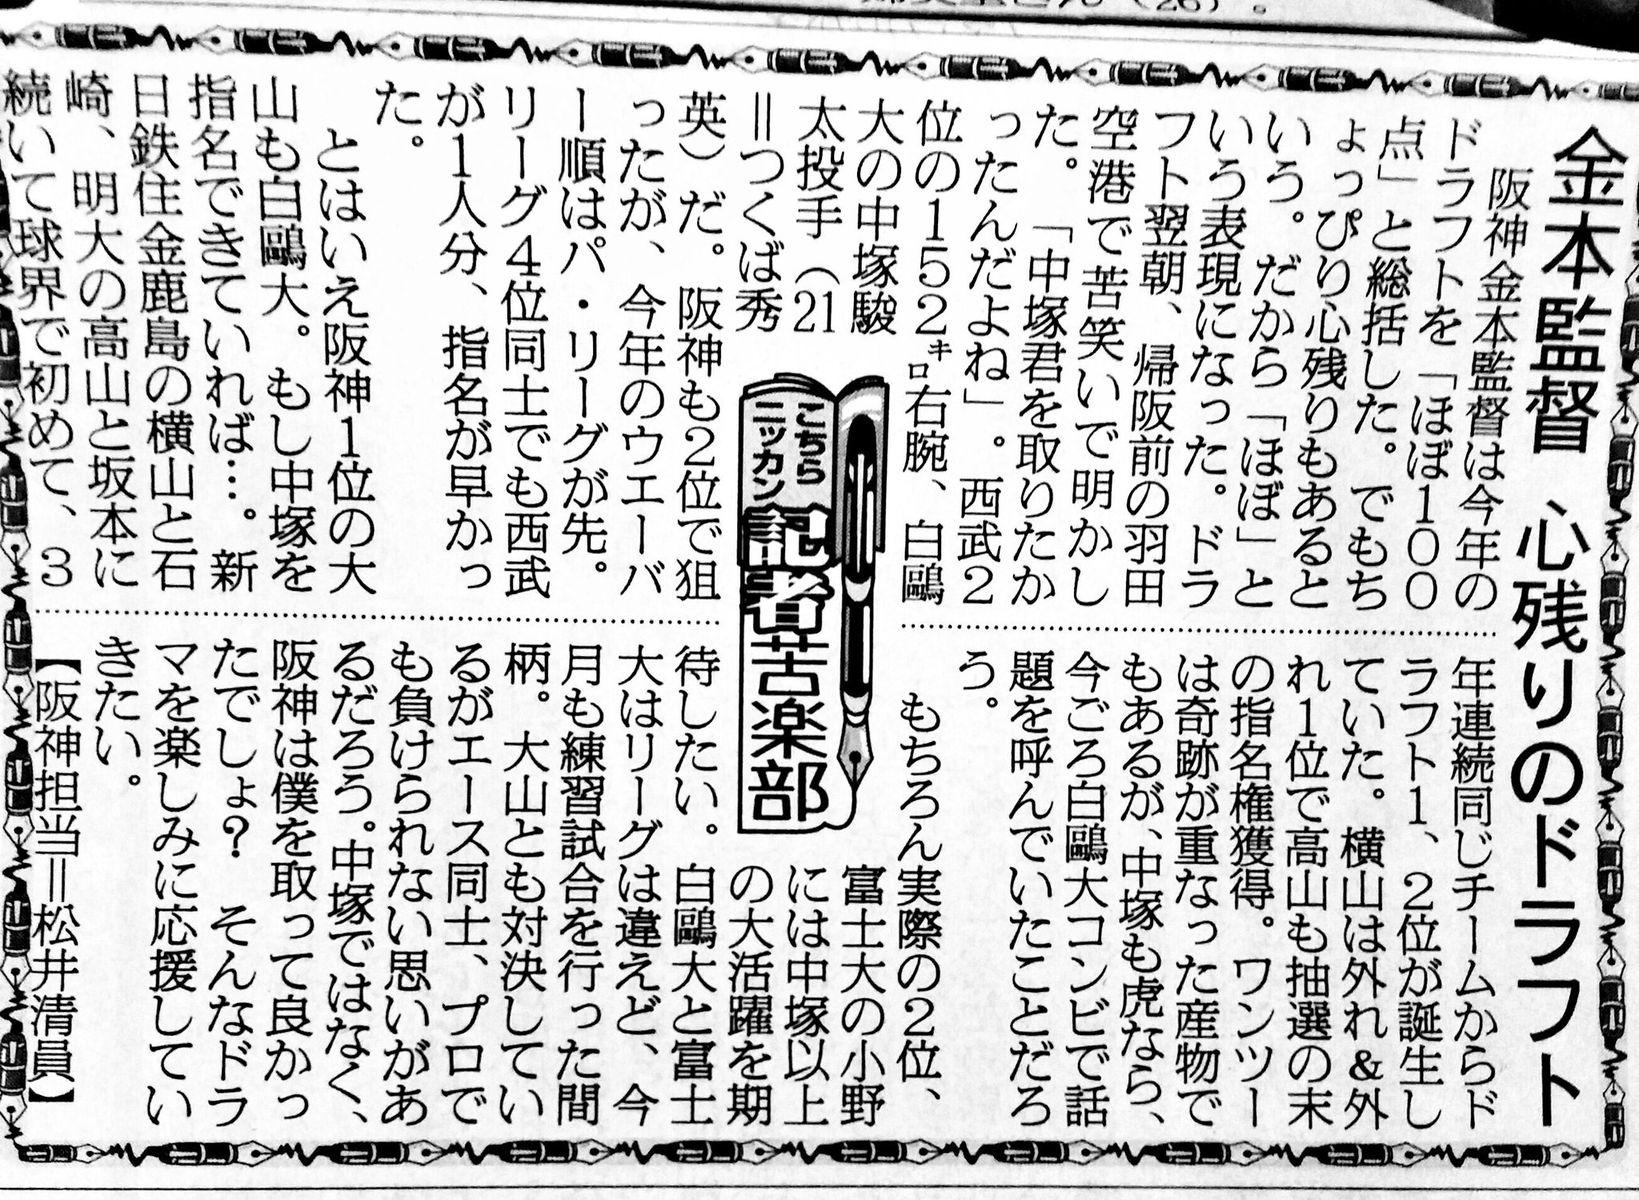 さん(26)。
金本監督 心残りのドラフト
阪神金本監督は今年の
ドラフトを「ほぼ100
点」と総括した。でもち
ょっぴり心残りもあると
いう。だから「ほぼ」と
いう表現になった。ドラ
フト翌朝、帰阪前の羽田
空港で苦笑いで明かし
た。「中塚君を取りたか
ったんだよね」。西武2
位の152㌔右腕、白鷗
大の中塚駿
太投手(21
=つくば秀
英)だ。阪神も2位で狙
ったが、今年のウエーバ
ー順はパ・リーグが先。
リーグ4位同士でも西武
が1人分、指名が早かっ
た。
とはいえ阪神1位の大
山も白鷗大。もし中塚を
指名できていれば…。新
日鉄住金鹿島の横山と石
崎、明大の高山と坂本に
続いて球界で初めて、3
こちら
ニッカン
記者苦楽部
年連続同じチームからド
ラフト1、2位が誕生し
ていた。横山は外れ&外
れ1位で高山も抽選の末
の指名権獲得。ワンツー
は奇跡が重なった産物で
もあるが、中塚も虎なら、
今ごろ白鷗大コンビで話
題を呼んでいたことだろ
う。
もちろん実際の2位、
富士大の小野
には中塚以上
の大活躍を期
待したい。白鷗大と富士
大はリーグは違えど、今
月も練習試合を行った間
柄。大山とも対決してい
るがエース同士、プロで
も負けられない思いがあ
るだろう。中塚ではなく、
阪神は僕を取って良かっ
たでしょ? そんなドラ
マを楽しみに応援してい
きたい。
【阪神担当=松井清員】